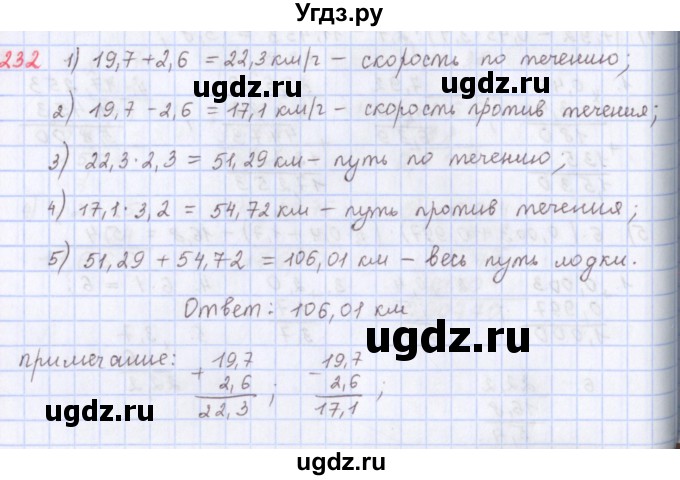 Угдз.ру
232 1) 19,7 + 2,6 = 22,3 км/г – скорость по течению;
ugdz.ru ugdz.ru
2) 19,7 – 2,6 = 17,1 км/г – скорость против течения;
3) 22,3 · 2,3 = 51,29 км – путь по течению;
ugdz.ru
4) 17,1 · 3,2 = 54,72 км – путь против течения;
5) 51,29 + 54,72 = 106,01 км – весь путь лодки.
ugdz.ru
Ответ: 106,01 км
ugdz.ru
примечание: + 19,7 – 19,7
2,6 ; 2,6 ;
22,3 17,1
ugdz.ru ugdz.ru
ugdz.ru